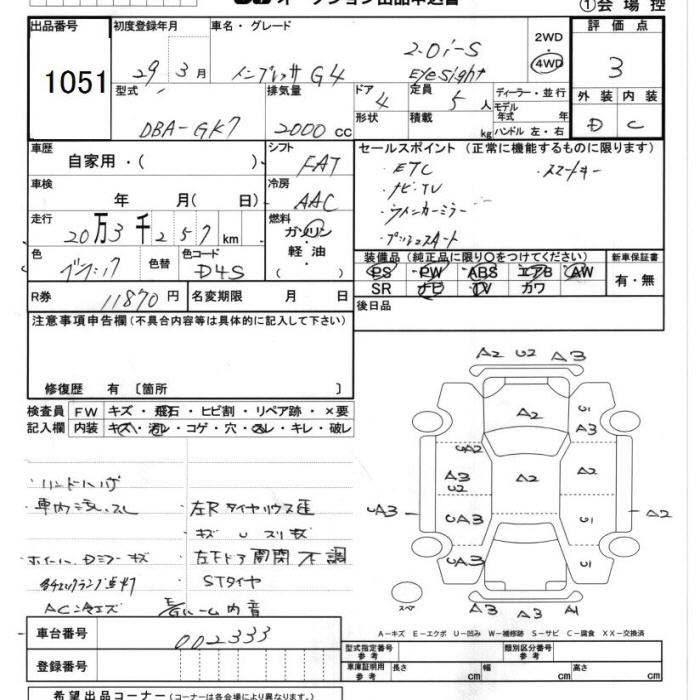 オークション出品申込書
①会場控
出品番号 初度登録年月 車名・グレード 2WD 評価点
1051 29年3月 インプレッサ G4 2.0i-S EyeSight 4WD 3
型式 排気量 ドア 定員 ディーラー・並行 外装 内装
DBA-GK7 2000cc 4 5人 モデル年式 年 D C
形状 積載 kg ハンドル 左・右
車歴 シフト セールスポイント(正常に機能するものに限ります)
自家用・( )・ FAT ・ETC ・スマートキー
車検 冷房 ・ナビTV
年 月(日) AAC ・ウインカーミラー
走行 燃料 ・プッシュスタート
20万3千257km ガソリン
軽油
色 色替 色コード 装備品(純正品に限り○をつけてください) 新車保証書
ブラック D4S PS PW ABS エアB AW 有・無
SR ナビ TV カワ
R券 11870円 名変期限 月 日 後日品
注意事項申告欄(不具合内容等は具体的に記入して下さい)
修復歴 有〔箇所 〕
検査員 FW キズ・飛石・ヒビ割・リペア跡・×要
記入欄 内装 キズ・汚レ・コゲ・穴・スレ・キレ・破レ
A2 U2 A3
A2 U1 A3
UA2
A3 U2 A2
UA3 UA3 U1 A2
UA3
A3 A3 A1
スペア
・ハンドルハゲ
・車内汚レ、スレ ・左Rタイヤハウス歪
キズ U スリキズ
・ホイール、Dミラーキズ ・左Fドア開閉不調
・STタイヤ
・AC冷エズ ルーム内音
A-キズ E-エクボ U-凹み W-補修跡 S-サビ C-腐食 XX-交換済
車台番号 002333 型式指定番号 参考 類別区分番号 参考
登録番号 車庫証明用 参考 長さ cm 幅 cm 高さ cm
希望出品コーナー(コーナーは各会場により異なります。)